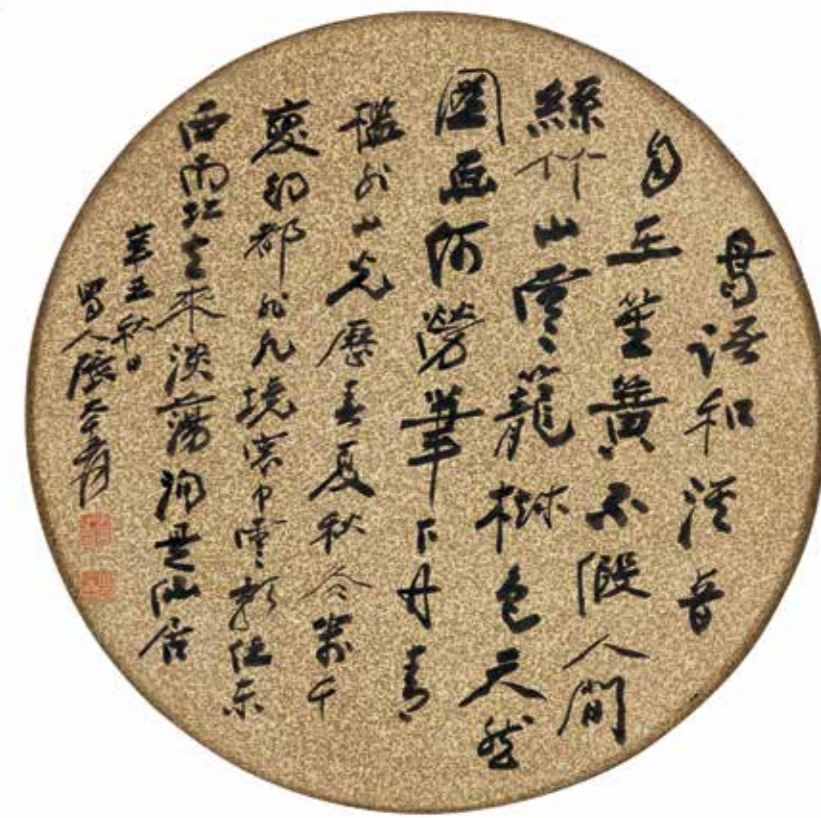 鳥語和溪音
自在笙簧不假人間
絲竹山雲籠樹色天然
圖畫何勞筆下丹青
檻外山光歷春夏秋冬萬千
變幻都非凡境窗中雲影任東
西南北去來淡蕩洵是仙居
辛丑秋日
蜀人張大千爰